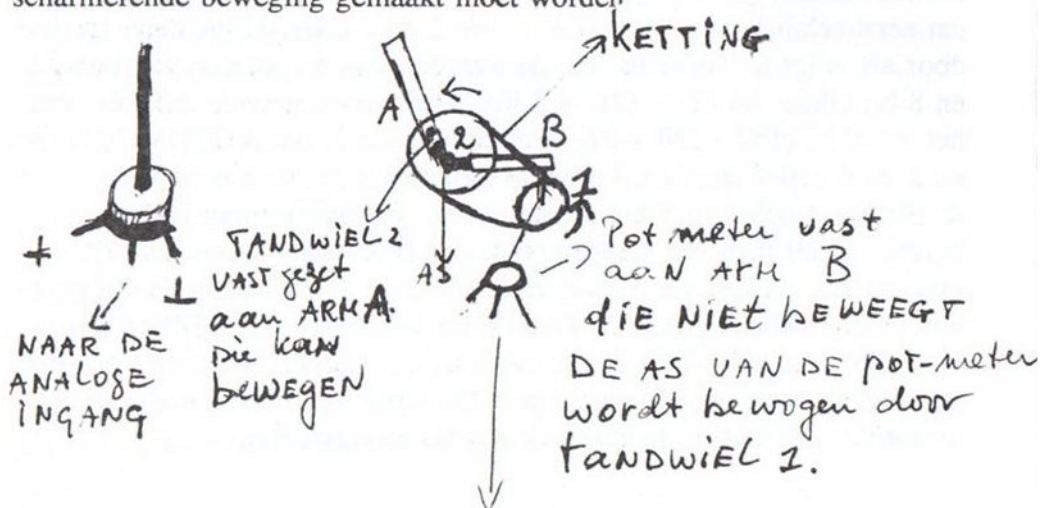 scharnierende beweging gemaakt moet worden
KETTING
A
2
B
1
+
⊥
AS
NAAR DE
ANALOGE
INGANG
TANDWIEL 2
VAST gezet
aan ARM A
Die kan
bewegen
Pot meter vast
aan ARM B
die NIET BEWEEGT
DE AS VAN DE pot-meter
wordt bewogen door
TANDWIEL 1.